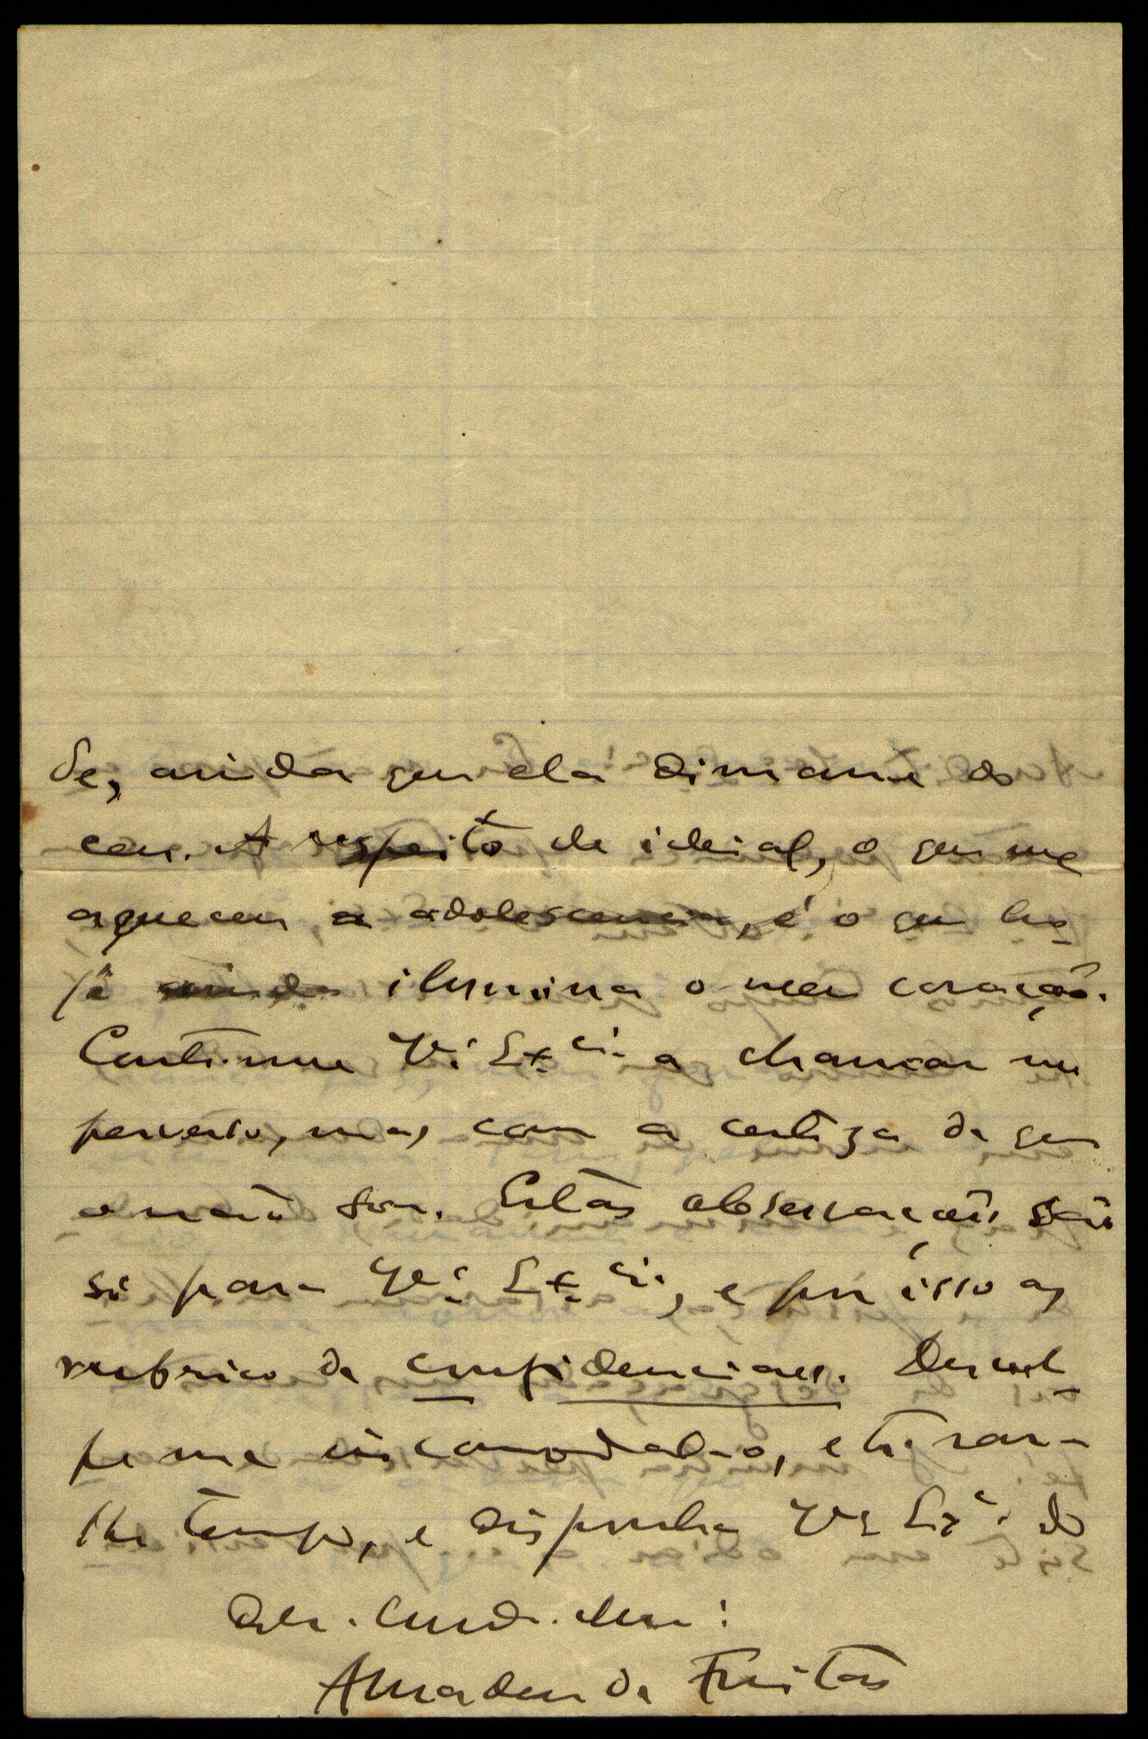 de, ainda que ela dimane do
ceu. A respeito de ideial, o que me
aqueceu a adolescencia, é o que ho-
je ainda ilumina o meu coração.
Continue V.ª Ex.cia a chamar me
perverso, mas com a certeza de que
o não sou. Estas observações são
só para V.ª Ex.cia, e por isso as
rubrico de confidenciaes. Descul-
pe me incomodal-o, e tirar-
lhe tempo, e disponha V.ª Ex.ª do
Adm.
Amadeu de Freitas